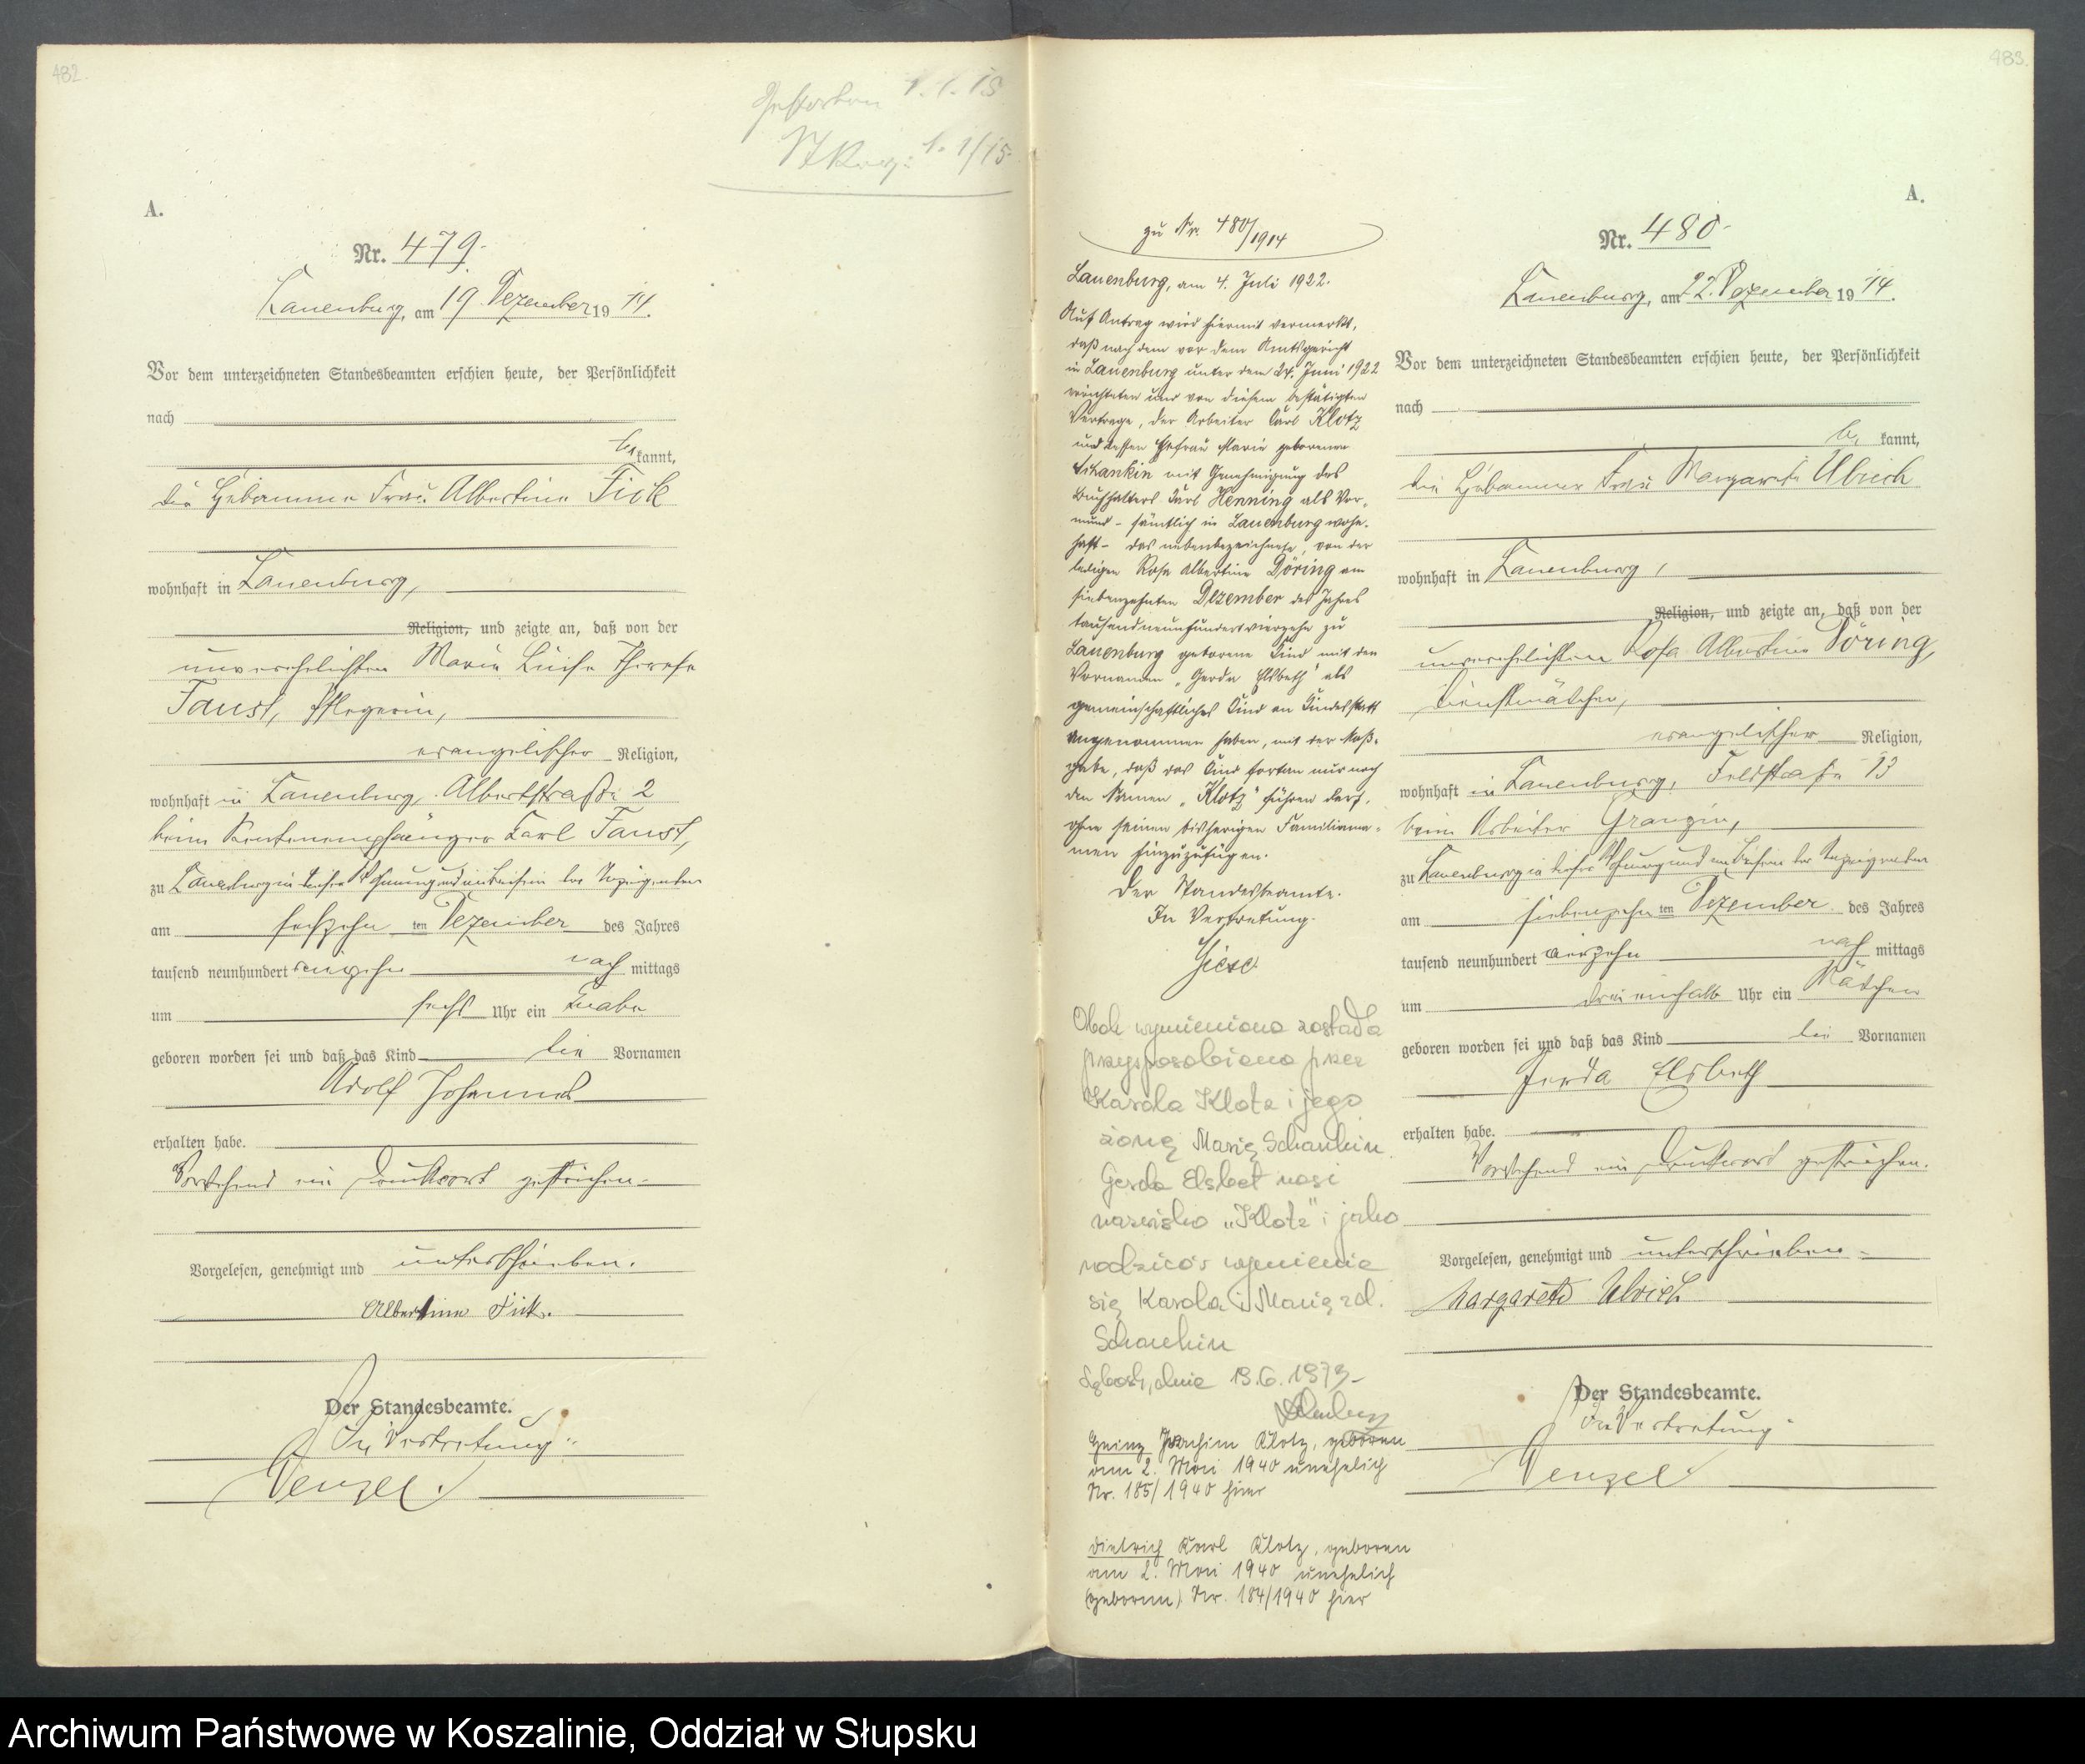 482.
Gestorben 1.1.15
St.Reg: No 1/15
A.
Nr. 479.
Lauenburg, am 19. Dezember 19 14.
Vor dem unterzeichneten Standesbeamten erschien heute, der Persönlichkeit
nach
be kannt,
die Hebamme Frau Albertine Fick
wohnhaft in Lauenburg,
Religion, und zeigte an, daß von der
unverehelichten Marie Luise Therese
Faust, Pflegerin,
evangelischer Religion,
wohnhaft in Lauenburg, Albertstraße 2
beim Rentenempfänger Carl Faust,
zu Lauenburg in dieser Wohnung und im Beisein der Anzeigenden
am sechszehn ten Dezember des Jahres
tausend neunhundert vierzehn nach mittags
um sechs Uhr ein Knabe
geboren worden sei und daß das Kind die Vornamen
Adolf Johannes
erhalten habe.
Vorstehend ein Druckwort gestrichen.
Vorgelesen, genehmigt und unterschrieben.
Albertine Fick.
Der Standesbeamte.
In Vertretung.
Wenzel.
483.
zu Nr. 480/1914
Lauenburg, am 4. Juli 1922.
Auf Antrag wird hiermit vermerkt,
daß nach dem vor dem Amtsgericht
in Lauenburg unter dem 24. Juni 1922
errichteten und von diesem bestätigten
Vertrage, der Arbeiter Carl Klotz
und dessen Ehefrau Marie geborene
Schankin mit Genehmigung des
Buchhalters Karl Henning als Vor-
mund - sämtlich in Lauenburg wohn-
haft - das nebenbezeichnete, von der
ledigen Rosa Albertine Döring am
siebenzehnten Dezember des Jahres
tausendneunhundertvierzehn zu
Lauenburg geborene Kind mit den
Vornamen „Gerda Elsbeth" als
gemeinschaftliches Kind an Kindesstatt
angenommen haben, mit der Maß-
gabe, daß das Kind fortan nur noch
den Namen „Klotz" führen darf,
ohne seinen bisherigen Familienna-
men hinzuzufügen.
Der Standesbeamte.
In Vertretung.
Giese
Obok wymieniona została
przysposobiona przez
Karola Klotz i jego
żonę Marię Schankin.
Gerda Elsbet nosi
nazwisko „Klotz" i jako
rodziców wymienia
się Karola i Marię zd.
Schankin
Lębork, dnia 19.6.1979
Heinz Joachim Klotz, geboren
am 2. Mai 1940 unehelich
Nr. 185/1940 hier
Dietrich Karl Klotz, geboren
am 2. Mai 1940 unehelich
(geboren) Nr. 184/1940 hier
A.
Nr. 480.
Lauenburg, am 22. Dezember 19 14.
Vor dem unterzeichneten Standesbeamten erschien heute, der Persönlichkeit
nach
be kannt,
die Hebamme Frau Margarete Ulrich
wohnhaft in Lauenburg,
Religion, und zeigte an, daß von der
unverehelichten Rosa Albertine Döring,
Dienstmädchen,
evangelischer Religion,
wohnhaft in Lauenburg, Feldstraße 13
beim Arbeiter Grangin,
zu Lauenburg in dieser Wohnung und im Beisein der Anzeigenden
am siebenzehn ten Dezember des Jahres
tausend neunhundert vierzehn nach mittags
um dreieinhalb Uhr ein Mädchen
geboren worden sei und daß das Kind die Vornamen
Gerda Elsbeth
erhalten habe.
Vorstehend ein Druckwort gestrichen.
Vorgelesen, genehmigt und unterschrieben.
Margarete Ulrich
Der Standesbeamte.
In Vertretung.
Wenzel.
Archiwum Państwowe w Koszalinie, Oddział w Słupsku